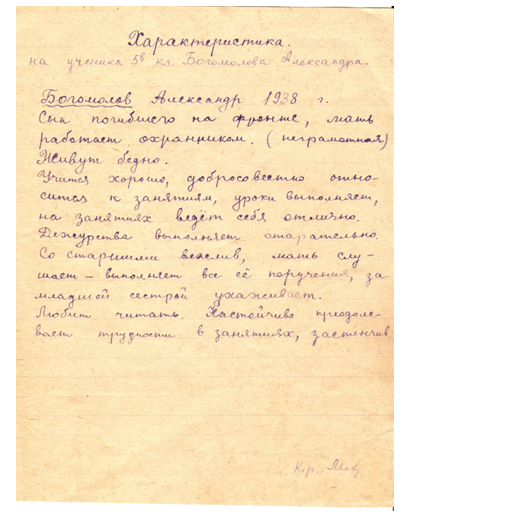 Характеристика.
на ученика 5в кл. Богомолова Александра
Богомолов Александр 1938 г.
Сын погибшего на фронте, мать
работает охранником. (неграмотная)
Живут бедно.
Учится хорошо, добросовестно отно-
сится к занятиям, уроки выполняет,
на занятиях ведёт себя отлично.
Дежурства выполняет старательно.
Со старшими вежлив, мать слу-
шает - выполняет все её поручения, за
младшей сестрой ухаживает.
Любит читать. Настойчиво преодоле-
вает трудности в занятиях, застенчив.